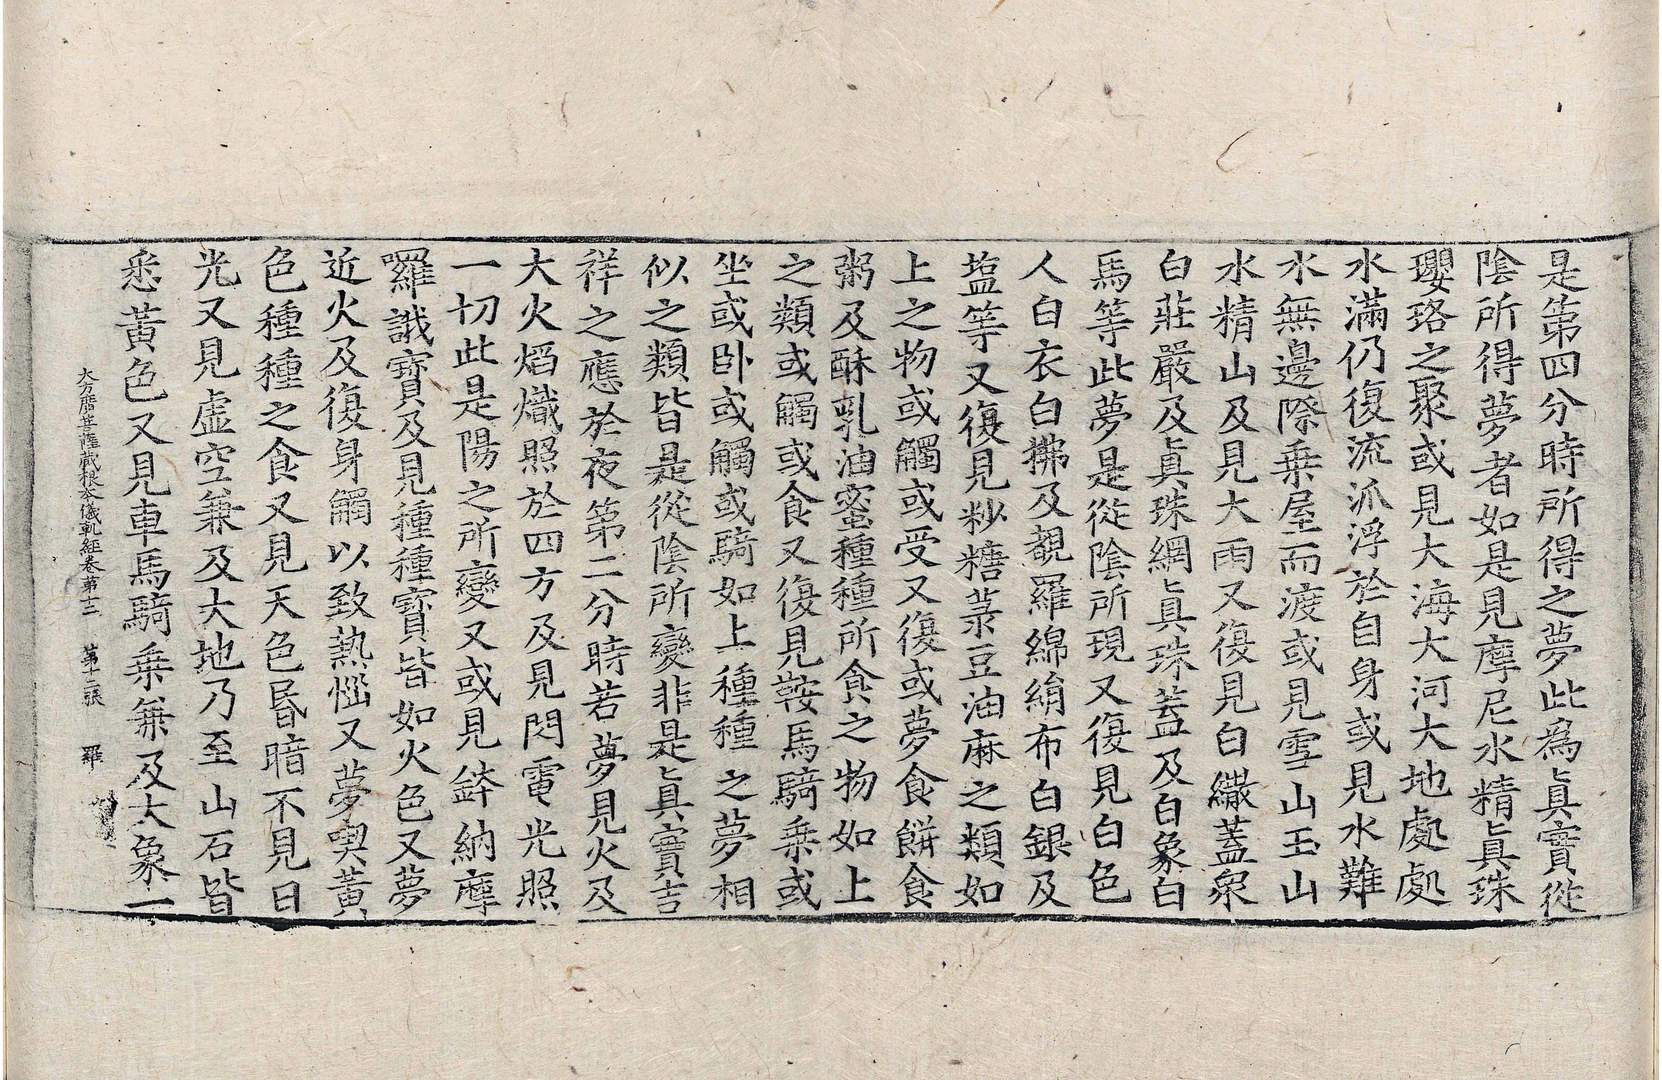 是第四分時所得之夢此為真實從
陰所得夢者如是見摩尼水精真珠
瓔珞之聚或見大海大河大地處處
水滿仍復流泒浮於自身或見水難
水無邊際乗屋而渡或見雪山玉山
水精山及見大雨又復見白繖蓋衆
白莊嚴及真珠網真珠蓋及白象白
馬等此夢是從陰所現又復見白色
人白衣白拂及覩羅綿絹布白銀及
塩等又復見粆糖菉豆油麻之類如
上之物或觸或受又復或夢食餅食
粥及酥乳油蜜種種所食之物如上
之類或觸或食又復見鞍馬騎乗或
坐或卧或觸或騎如上種種之夢相
似之類皆是從陰所變非是真實吉
祥之應於夜第二分時若夢見火及
大火熖熾照於四方及見閃電光照
一切此是陽之所變又或見鉢納摩
囉誐寶及見種種寶皆如火色又夢
近火及復身觸以致熱惱又夢喫黃
色種種之食又見天色昏暗不見日
光又見虛空兼及大地乃至山石皆
悉黃色又見車馬騎乗兼及大象一
大方廣菩薩藏根本儀軌經卷第十三 第十二張 羅